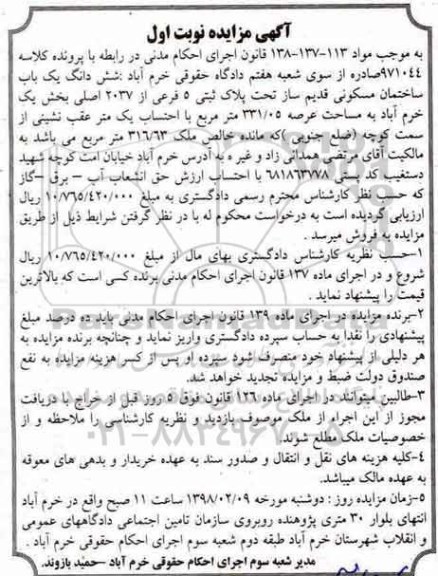 آگهی مزایده نوبت اول
به موجب مواد ۱۱۳-۱۳۷-۱۳۸ قانون اجرای احکام مدنی در رابطه با پرونده کلاسه
۹۷۱۰۴۴صادره از سوی شعبه هفتم دادگاه حقوقی خرم آباد :شش دانگ یک باب
ساختمان مسکونی قدیم ساز تحت پلاک ثبتی ۵ فرعی از ۲۰۳۷ اصلی بخش یک
خرم آباد به مساحت عرصه ۳۳۱/۰۵ متر مربع با احتساب یک متر عقب نشینی از
سمت کوچه (ضلع جنوبی )که مانده خالص ملک ۳۱۶/۶۳ متر مربع می باشد به
مالکیت آقای مرتضی همدانی زاد و غیر ه به آدرس خرم آباد خیابان امت کوچه شهید
دستغیب کد پستی ۶۸۱۸۶۳۷۷۸۸ با احتساب ارزش حق انشعاب آب – برق –گاز
که حسب نظر کارشناس محترم رسمی دادگستری به مبلغ ۱۰/۷۶۵/۴۲۰/۰۰۰ ریال
ارزیابی گردیده است به درخواست محکوم له با در نظر گرفتن شرایط ذیل از طریق
مزایده به فروش میرسد .
۱-حسب نظریه کارشناس دادگستری بهای مال از مبلغ ۱۰/۷۶۵/۴۲۰/۰۰۰ ریال
شروع و در اجرای ماده ۱۳۷ قانون اجرای احکام مدنی برنده کسی است که بالاترین
قیمت را پیشنهاد نماید .
۲-برنده مزایده در اجرای ماده ۱۳۹ قانون اجرای احکام مدنی باید ده درصد مبلغ
پیشنهادی را نقدا به حساب سپرده دادگستری واریز نماید و چنانچه برنده مزایده به
هر دلیلی از پیشنهاد خود منصرف شود سپرده او پس از کسر هزینه مزایده به نفع
صندوق دولت ضبط و مزایده تجدید خواهد شد.
۳-طالبین میتوانند در اجرای ماده ۱۲۶ قانون فوق ۵ روز قبل از حراج با دریافت
مجوز از این اجراء از ملک موصوف بازدید و نظریه کارشناسی را ملاحظه و از
خصوصیات ملک مطلع شوند
۴-کلیه هزینه های نقل و انتقال و صدور سند به عهده خریدار و بدهی های معوقه
به عهده مالک میباشد.
۵-زمان مزایده روز : دوشنبه مورخه ۱۳۹۸/۰۲/۰۹ ساعت ۱۱ صبح واقع در خرم آباد
انتهای بلوار ۳۰ متری پژوهنده روبروی سازمان تامین اجتماعی دادگاههای عمومی
و انقلاب شهرستان خرم آباد طبقه دوم شعبه سوم اجرای احکام حقوقی خرم آباد .
مدیر شعبه سوم اجرای احکام حقوقی خرم آباد –حمید بازوند.